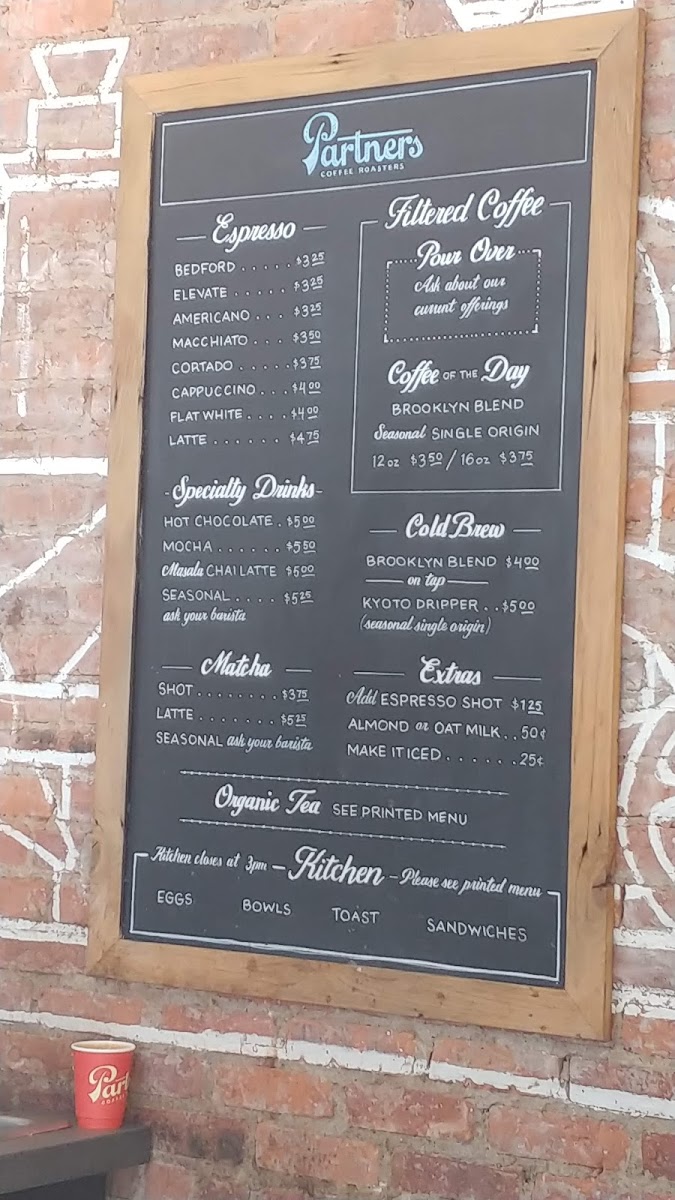 Partners
COFFEE ROASTERS
Espresso
BEDFORD . . . . . $3 25
ELEVATE . . . . . . $3 25
AMERICANO . . . $3 25
MACCHIATO . . . $3 50
CORTADO . . . . . $3 75
CAPPUCCINO . . . $4 00
FLAT WHITE . . . . $4 00
LATTE . . . . . . $4 75
- Specialty Drinks -
HOT CHOCOLATE . $5 00
MOCHA . . . . . . $5 50
Masala CHAI LATTE $5 00
SEASONAL . . . . $5 25
ask your barista
Matcha
SHOT . . . . . . . . $3 75
LATTE . . . . . . . $5 25
SEASONAL ask your barista
Filtered Coffee
Pour Over
Ask about our
current offerings
Coffee OF THE Day
BROOKLYN BLEND
Seasonal SINGLE ORIGIN
12oz $3 50 / 16oz $3 75
Cold Brew
BROOKLYN BLEND $4 00
on tap
KYOTO DRIPPER . . $5 00
(seasonal single origin)
Extras
Add ESPRESSO SHOT $1 25
ALMOND or OAT MILK . . 50¢
MAKE IT ICED . . . . . . 25¢
Organic Tea SEE PRINTED MENU
Kitchen closes at 3pm - Kitchen - Please see printed menu
EGGS BOWLS TOAST SANDWICHES
Part